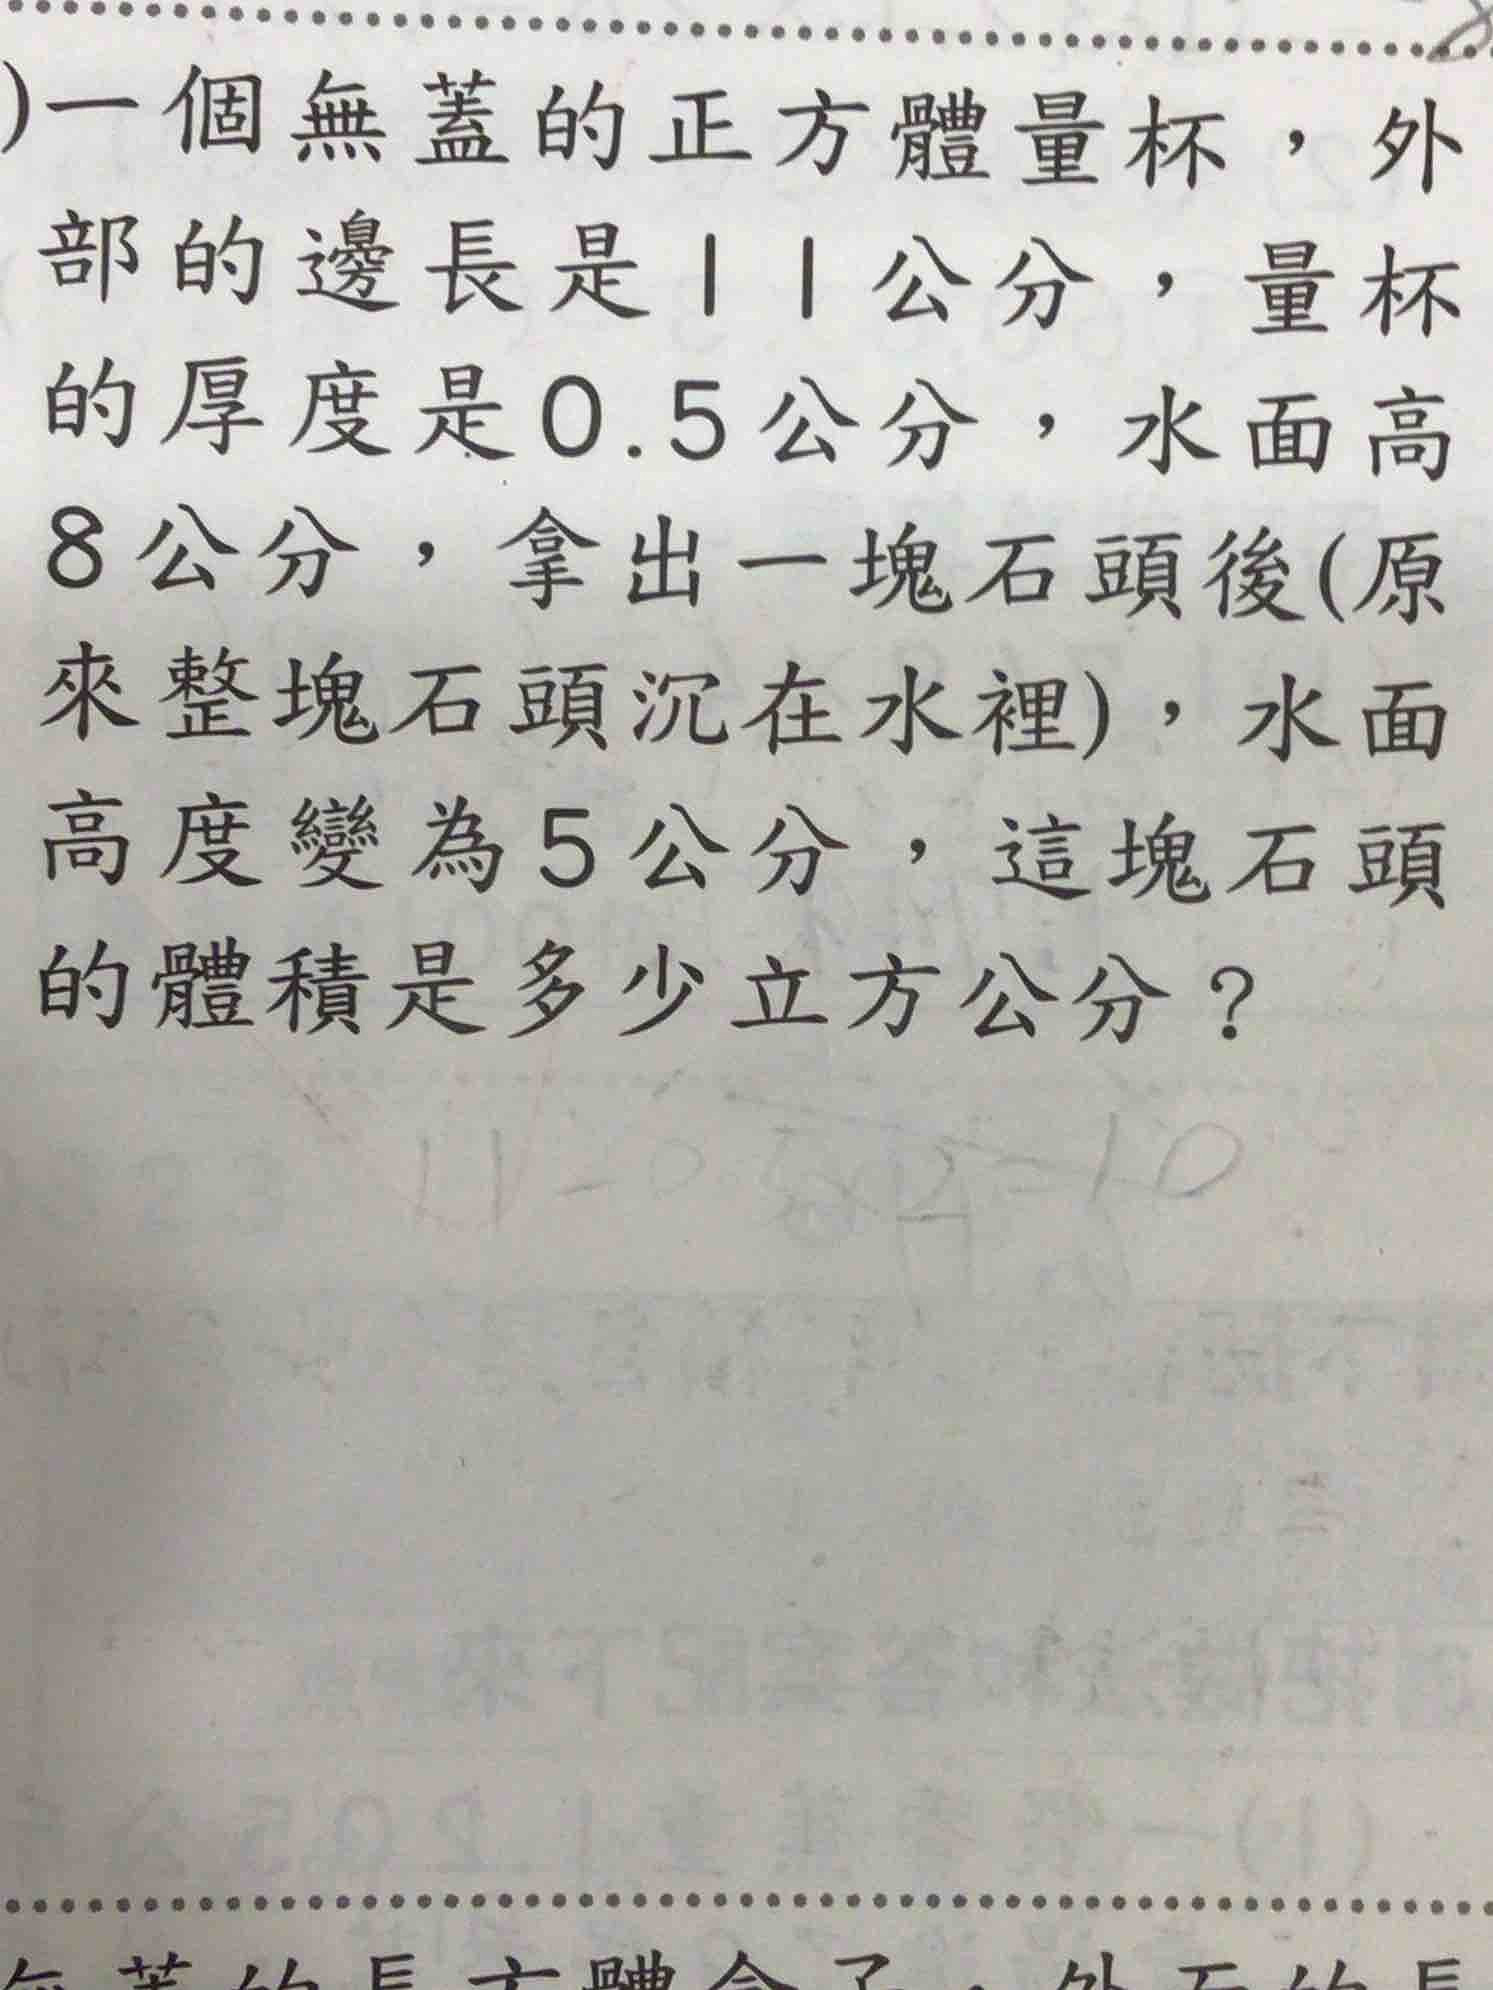 )一個無蓋的正方體量杯，外
部的邊長是11公分，量杯
的厚度是0.5公分，水面高
8公分，拿出一塊石頭後(原
來整塊石頭沉在水裡)，水面
高度變為5公分，這塊石頭
的體積是多少立方公分？